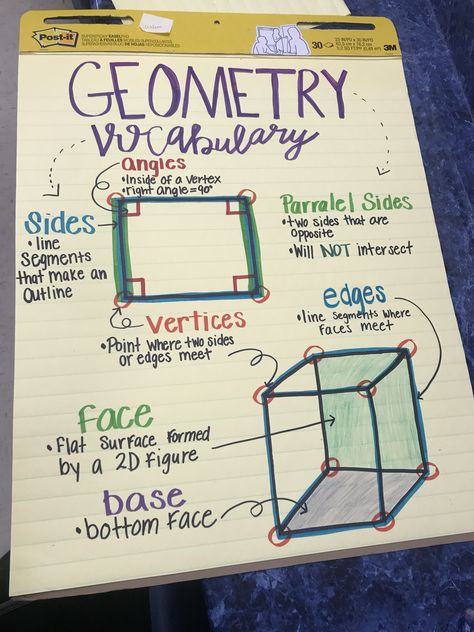 Post-it
SUPERSTICKY EASEL PAD
30
25 IN/PO x 30 IN/PO
63,5 cm x 76,2 cm
5.2 SQ FT/PI (0,48 m²)
3M
GEOMETRY
vocabulary
angles
•Inside of a vertex
•right angle=90°
Sides
•line
segments
that make an
outline
Parralel Sides
•two sides that are
opposite
•Will NOT intersect
vertices
•Point where two sides
or edges meet
edges
•line segments where
faces meet
face
•flat surface formed
by a 2D figure
base
•bottom face